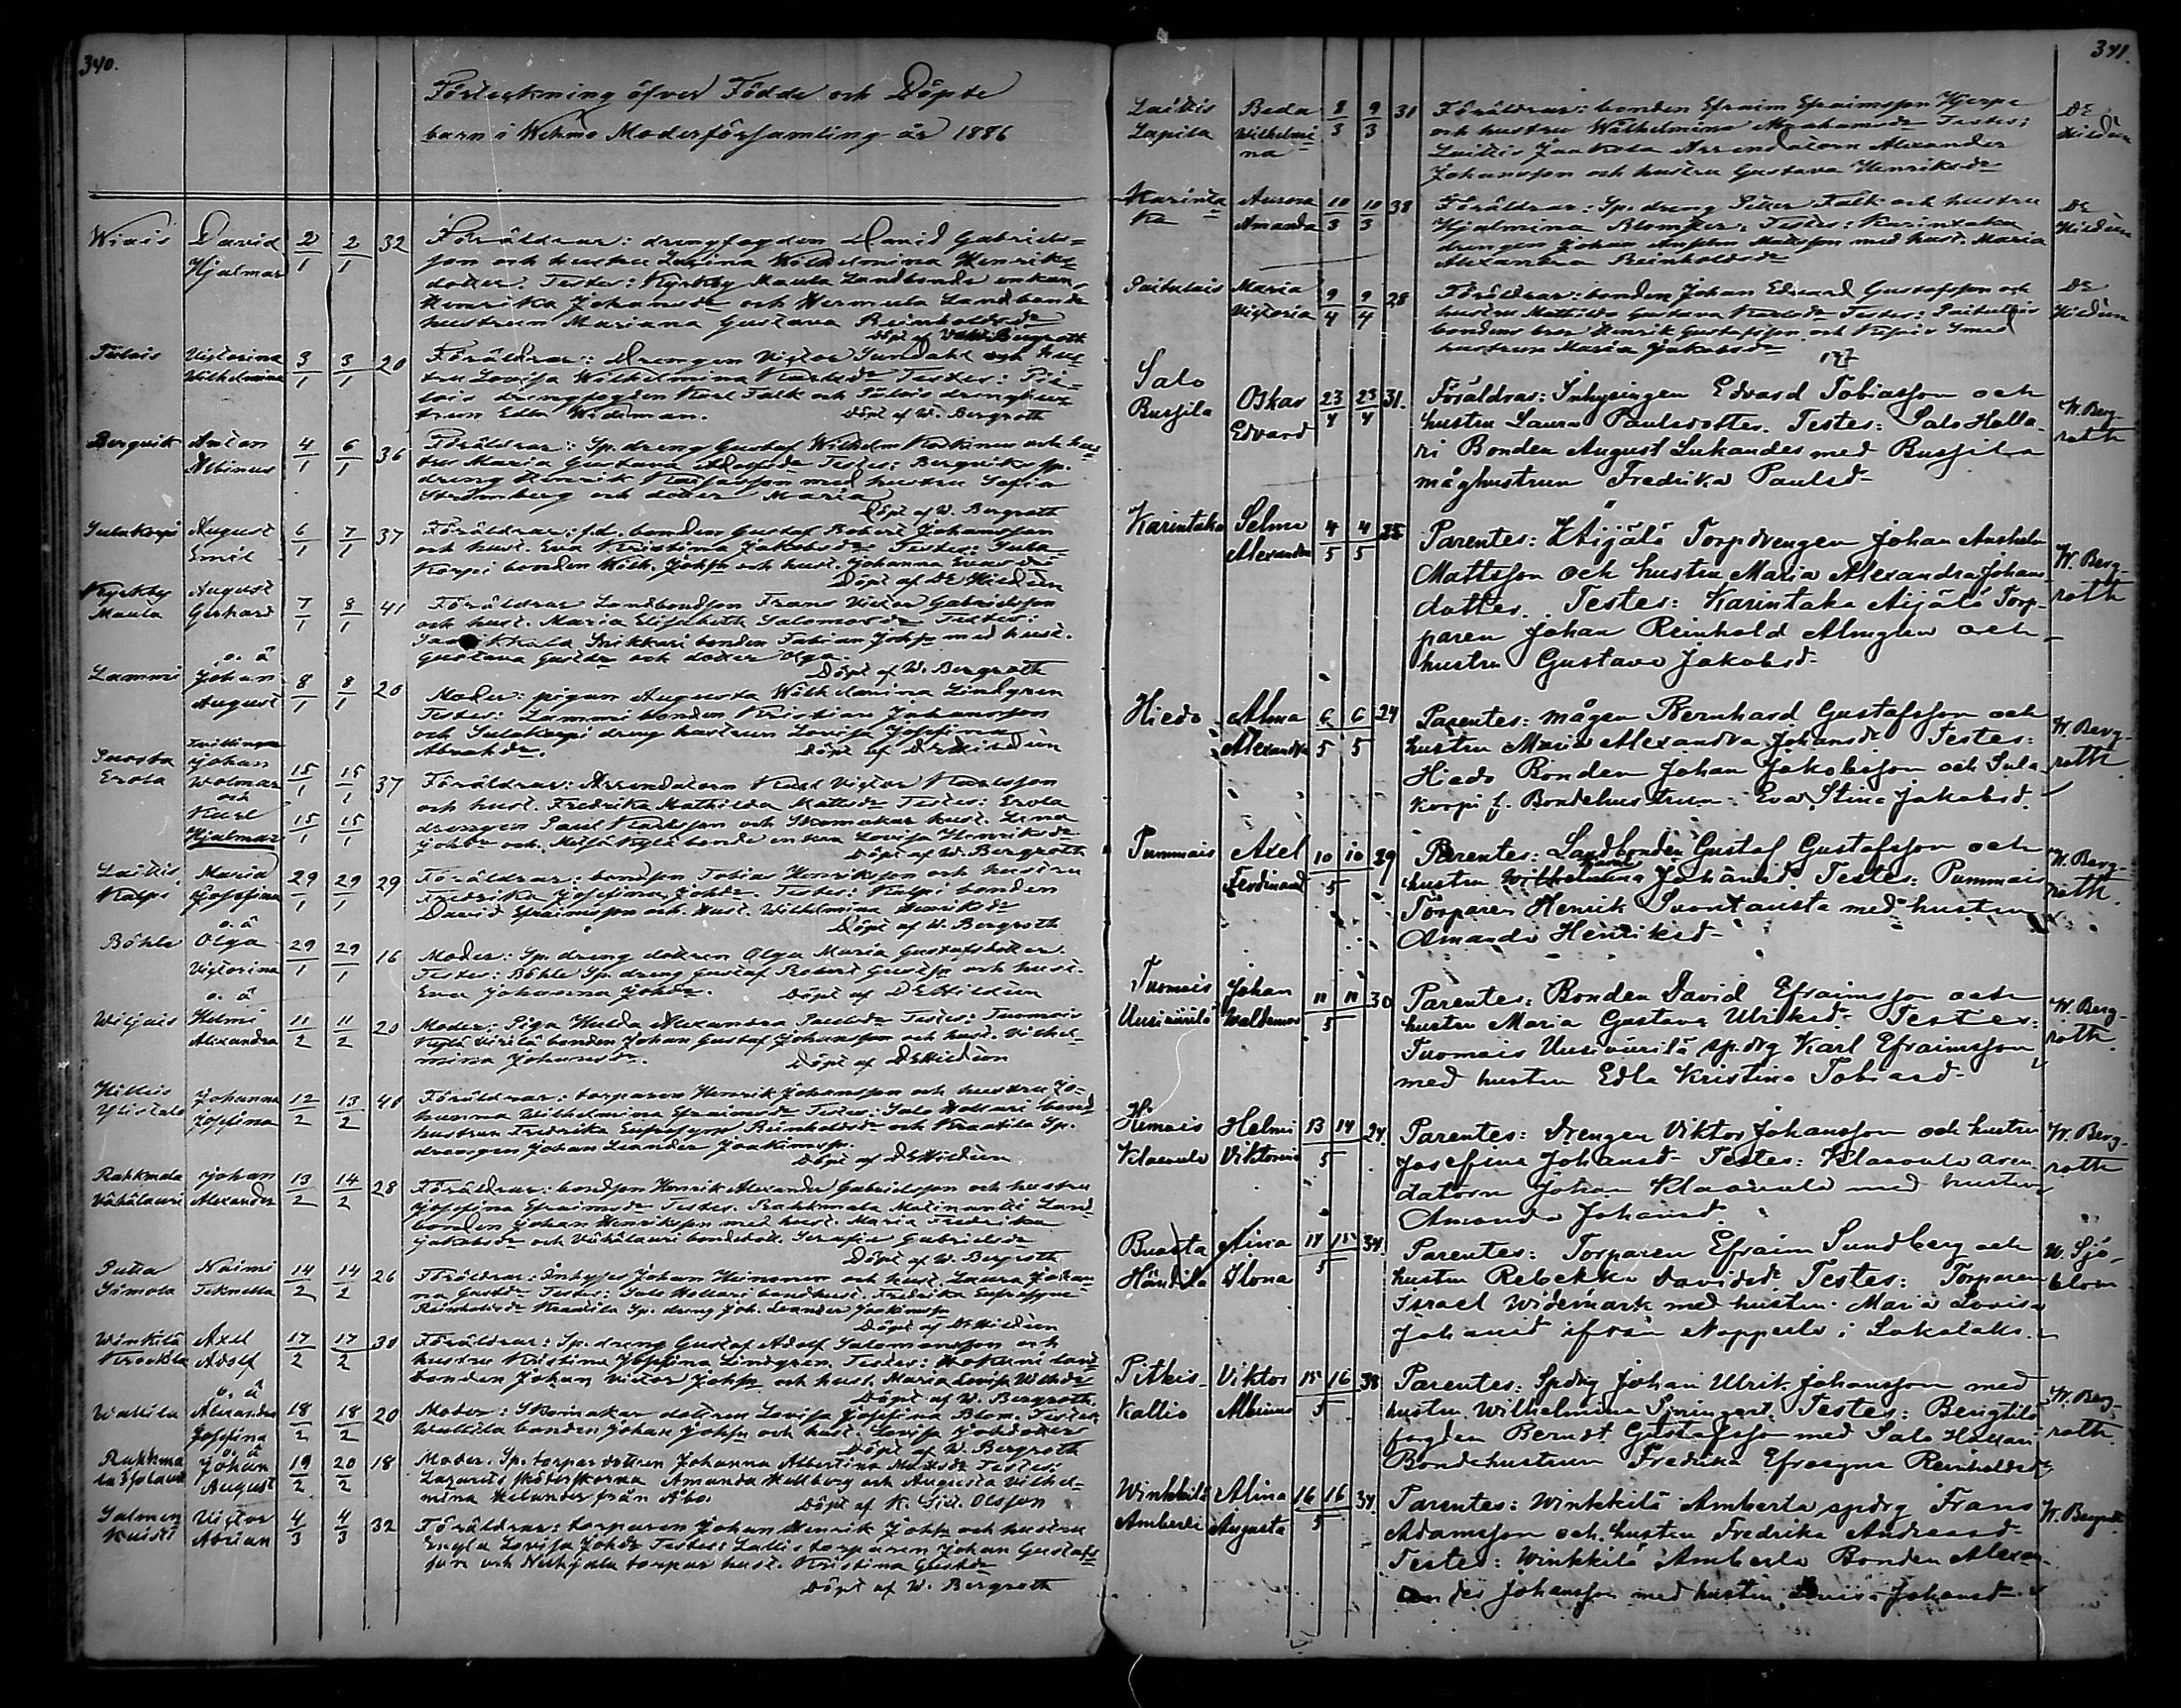 340.
Förteckning öfver Födde och Döpte
barn i Wehmo Moderförsamling år 1886
Wiais David Hjalmar 2/1 2/1 32
Föräldrar: drengfogden David Gabriels=
son och hustru Lovina Wilhelmina Henriks=
dotter. Testes: Kyrkby Maula Landbonde enkan
Henrika Johansdr och Hermula Landbonde
hustrun Mariana Gustava Reinholdsdr
Döpt af Wald. Bergroth
Victorina Wilhelmina 3/1 3/1 20
Föräldrar: Drengen Victor Sundahl och hus=
tru Lovisa Wilhelmina Karlsdr Testes:
drengfogden Karl Falk och drenghus=
trun Edla Wideman. Döpt af W. Bergroth
Bergvik Anton Albinus 4/1 6/1 36
Föräldrar: Sp. dreng Gustaf Wilhelm och hus=
tru Maria Gustava Adolfsdr Testes: Berqviks sp.
dreng Henrik med hustru Sofia
Strömberg och dotter Maria
Döpt af W. Bergroth
Sulakorpi August Emil 6/1 7/1 37
Föräldrar: f.d. bonden Gustaf Robert Johansson
och hust. Eva Kristina Jakobsdr Testes: Sula=
korpi bonden Wilh. Johsn och hust. Johanna
Döpt af DE Hildén
Kyrkby Maula August Gerhard 7/1 8/1 41
Föräldrar Landbondson Frans Victor Gabrielsson
och hust. Maria Elisabeth Salomonsdr Testes:
bonden Fabian Johsn med hust.
Gustava Gustdr och dotter Olga
Döpt af W. Bergroth
Lammi o. ä Johan August 8/1 8/1 20
Moder: pigan Augusta Wilhelmina Lindgren
Testes: Lammi bonden Kristian Johansson
och Sulakorpi dreng hustrun Lovisa Josefina
Abrahdr. Döpt af DE Hildén
Erola Tvillingar Johan Wolmar och Karl Hjalmar 15/1 15/1 15/1 15/1 37
Föräldrar: Arrendatorn Karl Victor Karlsson
och hust. Fredrika Mathilda Mattsdr Testes: Erola
drengen Paul Karlsson och Skomakar hust. Lena
Johdr och bonde enkan Lovisa Henriksdr
Döpt af W. Bergroth
Laitis Kalpi Maria Josefina 29/1 29/1 29
Föräldrar: bondson Tobias Henriksson och hustru
Fredrika Josefina Johdr. Testes: Kalpi bonden
David Efraimsson och Hust. Wilhelmina Henriksdr
Döpt af W. Bergroth
Böhle o. ä Olga Victorina 29/1 29/1 16
Moder: Sp. dreng dottren Olga Maria Gustafsdotter.
Testes: Böhle Sp. dreng Gustaf Robert Gustsn och hust.
Eva Johanna Johdr. Döpt af DE Hildén
Wiljais o. ä Helmi Alexandra 11/2 11/2 20
Moder: Piga Hulda Alexandra Paulsdr Testes: Tuomois
bonden Johan Gustaf Johansson och hust. Vilhel=
mina Johansdr. Döpt af DE Hildén
Ylistalo Johanna Josefina 12/2 13/2 40
Föräldrar: torparen Henrik Johansson och hustru Jo=
hanna Wilhelmina Efraimsdr Testes: Salo Hollari bond
hustrun Fredrika Eufrosyne Reinholdsdr och Kraatila Sp.
drengen Johan Leander Joakimsson.
Döpt af DE Hildén
Rahkmala Vähälauri Johan Alexander 13/2 14/2 28
Föräldrar: bondson Henrik Alexander Gabrielsson och hustru
Josefina Efraimsdr Testes. Rahkmala Land=
bonden Johan Henriksson med hust. Maria Fredrika
Jakobsdr och Vähälauri bondedott. Serafia Gabrielsdr
Döpt af W. Bergroth
Putta Naimi Teknetta 14/2 14/2 26
Föräldrar: Inhyses Johan Heinonen och hust. Laura Johan=
na Gustdr. Testes: Salo Hollari bondhust. Fredrika Eufrosyne
Reinholdsdr Kraatila Sp. dreng Joh. Leander Joakimsn
Döpt af DE Hildén
Winkilä Axel Adolf 17/2 17/2 30
Föräldrar: Sp. dreng Gustaf Adolf Salomonsson och
hustru Kristina Josefina Lindgren. Testes: land=
bonden Johan Victor Johsn och hust. Maria Lovisa Wilhdr
Döpt af W. Bergroth.
Wallila o. ä Alexandra Josefina 18/2 18/2 20
Moder: Skomakar dottren Lovisa Josefina Blom. Testes:
Wallila bonden Johan Johsn och hust. Lovisa Johdotter
Döpt af W. Bergroth
o. ä Johan August 19/2 20/2 18
Moder. Sp. torpar dottren Johanna Albertina Mattsdr Testes:
Lazarets sköterskorna Amanda Hellberg och Augusta Vilhel=
mina Helander från Åbo. Döpt af K. Olsson
Salmen Victor Adrian 4/3 4/3 32
Föräldrar: torparen Johan Henrik Johsn och hustru
Engla Lovisa Johdr Testes: Lallis torparen Johan Gustafs=
son och Nuhjala torpar hust. Kristina Gustdr
Döpt af W. Bergroth
341.
Laitis Lapila Beda Wilhelmi=na 8/3 9/3 31
Föräldrar: bonden Efraim Efraimsson Hjerpe
och hustru Wilhelmina Abrahamsdr Testes:
Laitis Jaakola Arrendatorn Alexander
Johansson och hustru Gustava Henriksdr
DE Hildén
Karinta=ka Aurora Amanda 10/3 10/3 38
Föräldrar: Sp. dreng Peter Falk och hustru
Hjalmina Blomster. Testes: Karintaka
drengen Johan Anselm Mattsson med hust. Maria
Alexandra Reinholdsdr
DE Hildén
Puitulais Maria Victoria 9/4 9/4 28
Föräldrar: bonden Johan Edvard Gustafsson och
hustru Mathilda Gustava Karlsdr Testes: Puitulais
bondens bror Henrik Gustafsson och Smed
hustrun Maria Jakobsdr
DE Hildén
Salo Bussila Oskar Edvard 23/4 25/4 31.
Föräldrar: Inhysingen Edvard Tobiasson och
hustru Laura Paulsdotter. Testes: Salo Holla-
ri Bonden August Lukander med Bussila
måghustrun Fredrika Paulsd-
W. Berg-
roth
Karintaka Selma Alexandra 4/5 4/5
Parentes: Äijälä Torpdrengen Johan Anshelm
Mattsson och hustru Maria Alexandra Johans-
dotter. Testes: Karintaka Äijälä Torp-
paren Johan Reinhold Almglen och
hustru Gustava Jakobsd-
W. Berg-
roth
Hiedo Alma Alexandra 6/5 6/5 24
Parentes: mågen Bernhard Gustafsson och
hustru Maria Alexandra Johansd- Testes:
Hiedo Bonden Johan Jakobsson och Sula-
korpi f. Bondehustrun Eva Stina Jakobsd.
W. Berg-
roth
Pummais Axel Ferdinand 10 10/5 29
Parentes: Landbonden Gustaf Gustafsson och
hustru Wilhelmina Johansd- Testes: Pummais
Torparen Henrik Suontausta med hustru
Amanda Henriksd-
W. Berg-
roth.
Tuomois Uusivirilä Johan Waldemar 11 11/5 30
Parentes: Bonden David Efraimsson och
hustru Maria Gustava Ulriksd- Testes:
Tuomois Uusivirilä sp.drg Karl Efraimsson
med hustru Edla Kristina Tobiasd-
W. Berg-
roth
Himois Klaavula Helmi Viktoria 13 14/5 24.
Parentes: Drengen Viktor Johansson och hustru
Josefina Johansd- Testes: Klaavula aren-
datorn Johan Klaavula med hustru
Amanda Johansd.
W. Berg-
roth
Händilä Aina Ilona 14 15/5 34.
Parentes: Torparen Efraim Sundberg och
hustru Rebekka Davidsd- Testes: Torparen
Israel Widemark med hustru Maria Lovisa
Johansd ifrån Nopperla i Lokalaks.
W. Sjö-
blom
Pitkis Kallio Viktor Albinus 15 16/5 38
Parentes: Spdrg Johan Ulrik Johansson med
hustru Wilhelmina Testes: Bengtils
fogden Berndt Gustafsson med Salo Hollari
Bondehustrun Fredrika Efrosyne Reinholdsd-
W. Berg-
roth.
Winkkilä Amberla Alina Augusta 16 16/5 34.
Parentes: Winkkilä Amberla spdrg Frans
Adamsson och hustru Fredrika Andreasd-
Testes: Winkkilä Amberla Bonden Alexan-
der Johansson med hustru Lovisa Johansd-
W. Bergroth